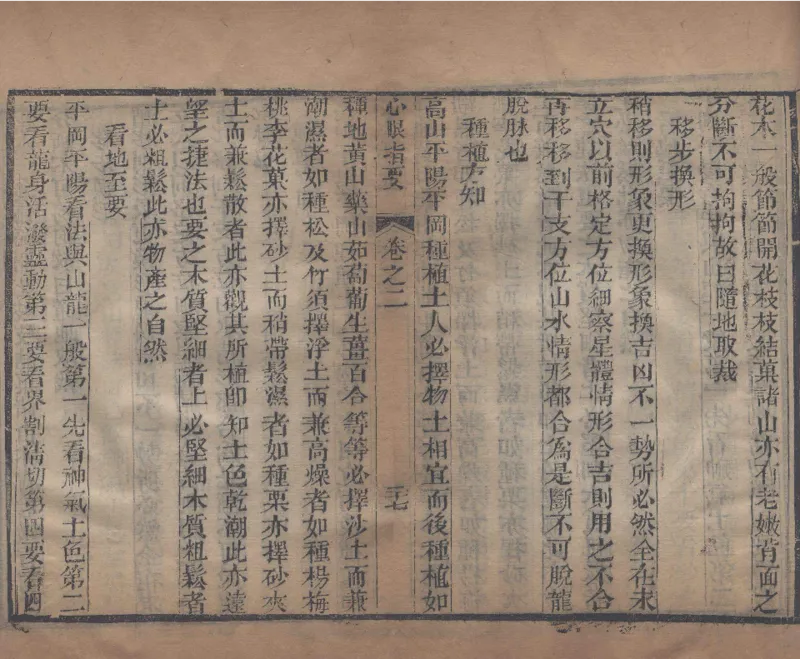 花木一般節節開花枝枝結菓諸山亦有老嫩背面之
分斷不可拘拘故曰隨地取裁
移步換形
稍移則形象更換形象換吉凶不一勢所必然全在未
立穴以前格定方位細察星體情形合吉則用之不合
再移移到干支方位山水情形都合爲是斷不可脫龍
脫脉也
種植方知
高山平陽平岡種植土人必擇物土相宜而後種植如
心眼指要 卷之二 三七
種地黃山藥山茹萄蔔生薑百合等等必擇沙土而兼
潮濕者如種松及竹須擇浮土而兼高燥者如種楊梅
桃李花菓亦擇砂土而稍帶鬆濕者如種栗亦擇砂夾
土而兼鬆散者此亦觀其所植即知土色乾潮此亦遠
望之捷法也要之木質堅細者上必堅細木質粗鬆者
土必粗鬆此亦物產之自然
看地至要
平岡平陽看法與山龍一般第一先看神氣土色第二
要看龍身活潑靈動第三要看界割清切第四要看四